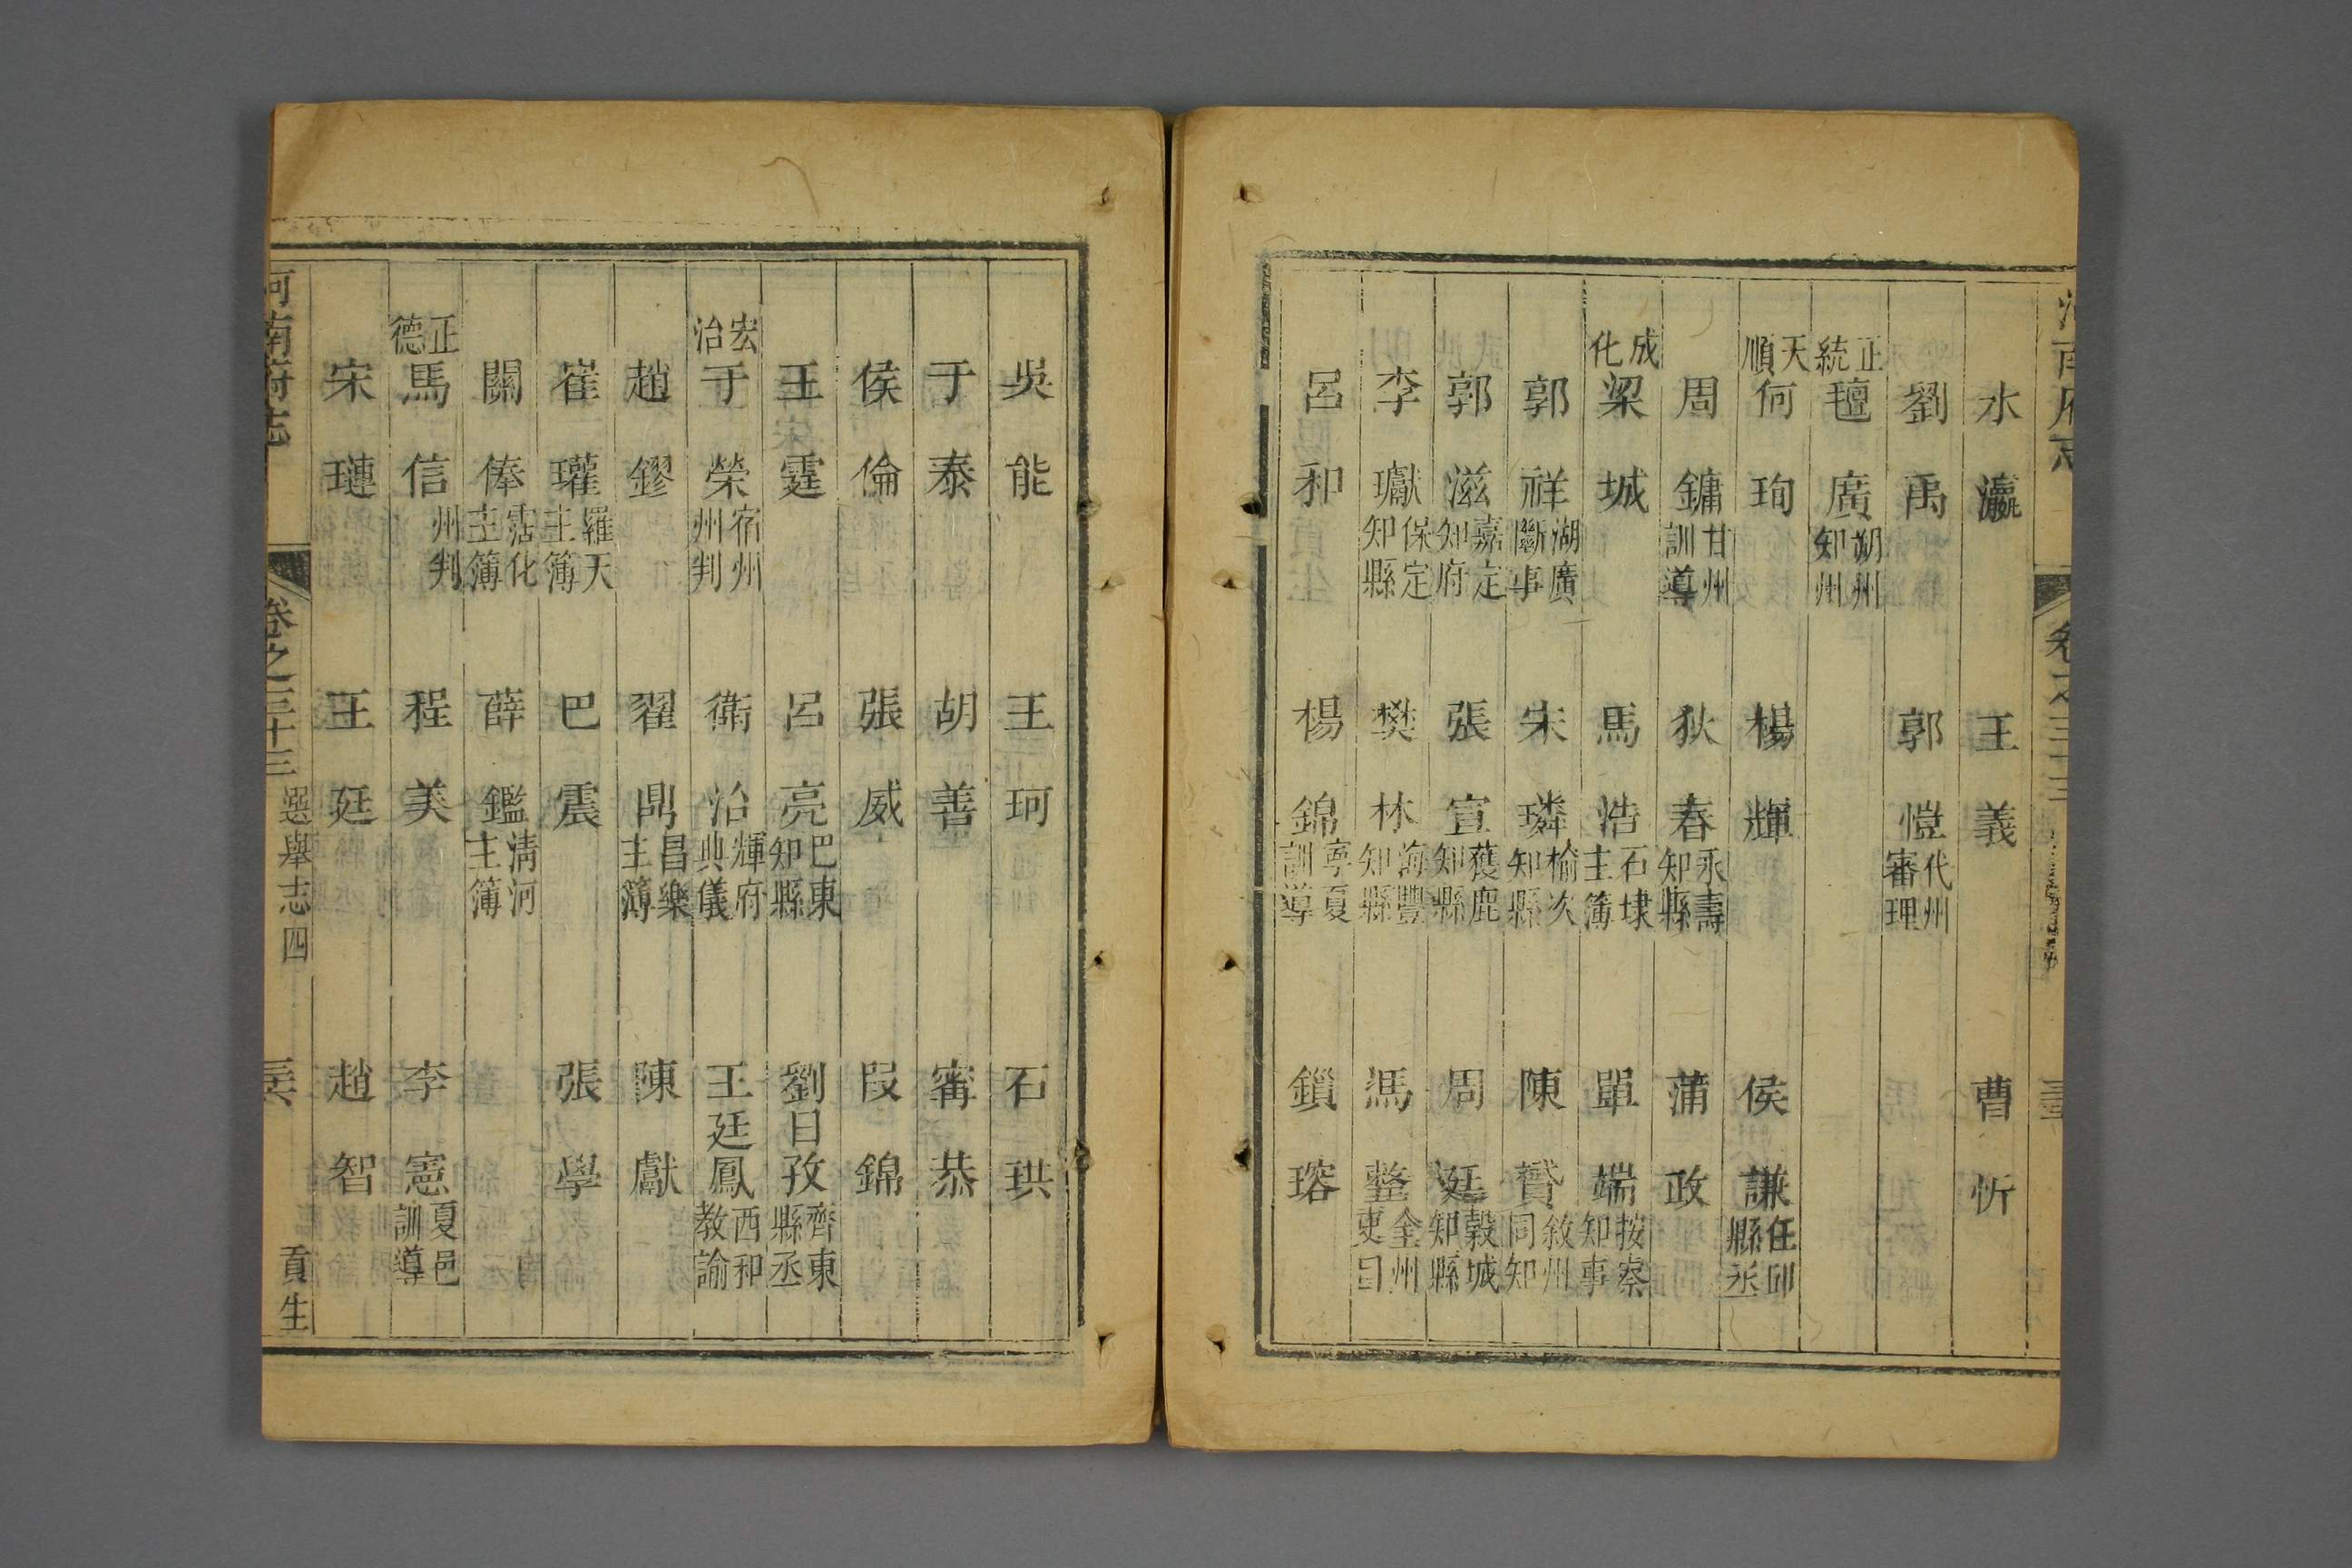 水瀛 王義 曹忻
劉禹 郭愷 代州審理
正統 氊廣 湖州知州
天順 何珣 楊輝 侯謙 任邱縣丞
周鏞 甘州訓導 狄春 永壽知縣 蒲政
成化 梁城 馬浩 石埭主簿 單端 按察知事
郭祥 湖廣斷事 宋璘 榆次知縣 陳贊 敘州同知
郭滋 嘉定知府 張宣 獲鹿知縣 周廷 穀城知縣
李瓛 保定知縣 樊林 海豐知縣 馮整 全州吏目
呂和 楊錦 寧夏訓導 鎖瑢
吳能 王珂 石珙
于泰 胡善 甯恭
侯倫 張威 段錦
王霆 呂亮 巴東知縣 劉日孜 齊東縣丞
宏治 于榮 宿州州判 衛治 輝府典儀 王廷鳳 西和教諭
趙鏐 翟鼎 昌樂主簿 陳獻
崔瓘 羅天主簿 巴震 張學
關俸 霑化主簿 薛鑑 清河主簿
正德 馬信 州判 程美 李憲 夏邑訓導
宋璉 王廷 趙智
河南府志 卷之三十三 選舉志四 貢生